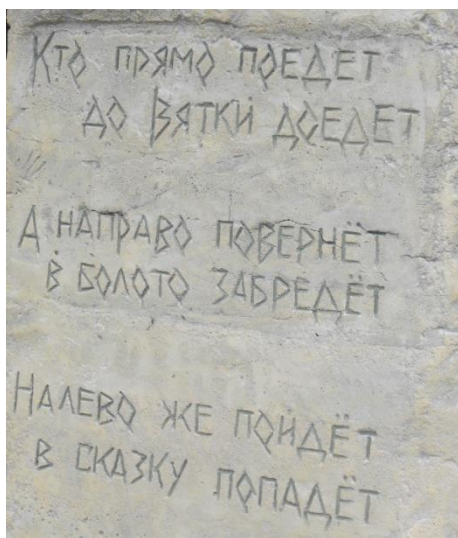 Кто прямо поедет
до Вятки доедет
А направо повернёт
в болото забредёт
Налево же пойдёт
в сказку попадёт